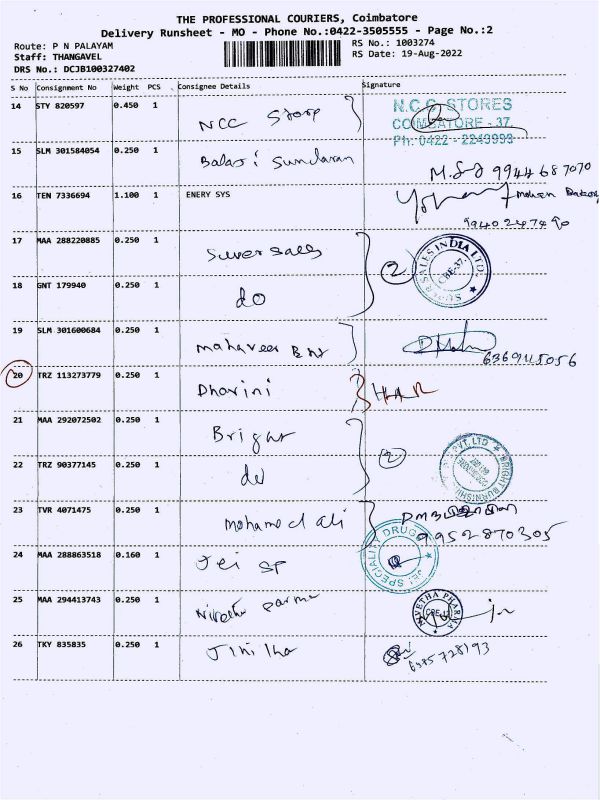 THE PROFESSIONAL COURIERS, Coimbatore
Delivery Runsheet - MO - Phone No.:0422-3505555 - Page No.:2
Route: P N PALAYAM
RS No.: 1003274
Staff: THANGAVEL
RS Date: 19-Aug-2022
DRS No.: DCJB100327402
S No Consignment No Weight PCS Consignee Details Signature
14 STY 820597 0.450 1 NCC
N.C.C. STORES
COIMBATORE - 37.
Ph: 0422 - 2243993
15 SLM 301584054 0.250 1 Balaji Sundaran
9944687070
16 TEN 7336694 1.100 1 ENERY SYS
Mohan
17 MAA 288220885 0.250 1 Super Sales
2 SUPER SALES INDIA LTD. CBE-37.
18 GNT 179940 0.250 1 do
19 SLM 301600684 0.250 1 Mahaveer
20 TRZ 113273779 0.250 1 Dharini
21 MAA 292072502 0.250 1 Bright
2 BRIGHT
PVT. LTD
22 TRZ 90377145 0.250 1 do
23 TVR 4071475 0.250 1 Mohamed ali
9952870305
24 MAA 288863518 0.160 1 Jei SP
JEI SPECIALITY DRUGS
25 MAA 294413743 0.250 1 Nivetha Parma
NIVETHA PHARMA
26 TKY 835835 0.250 1